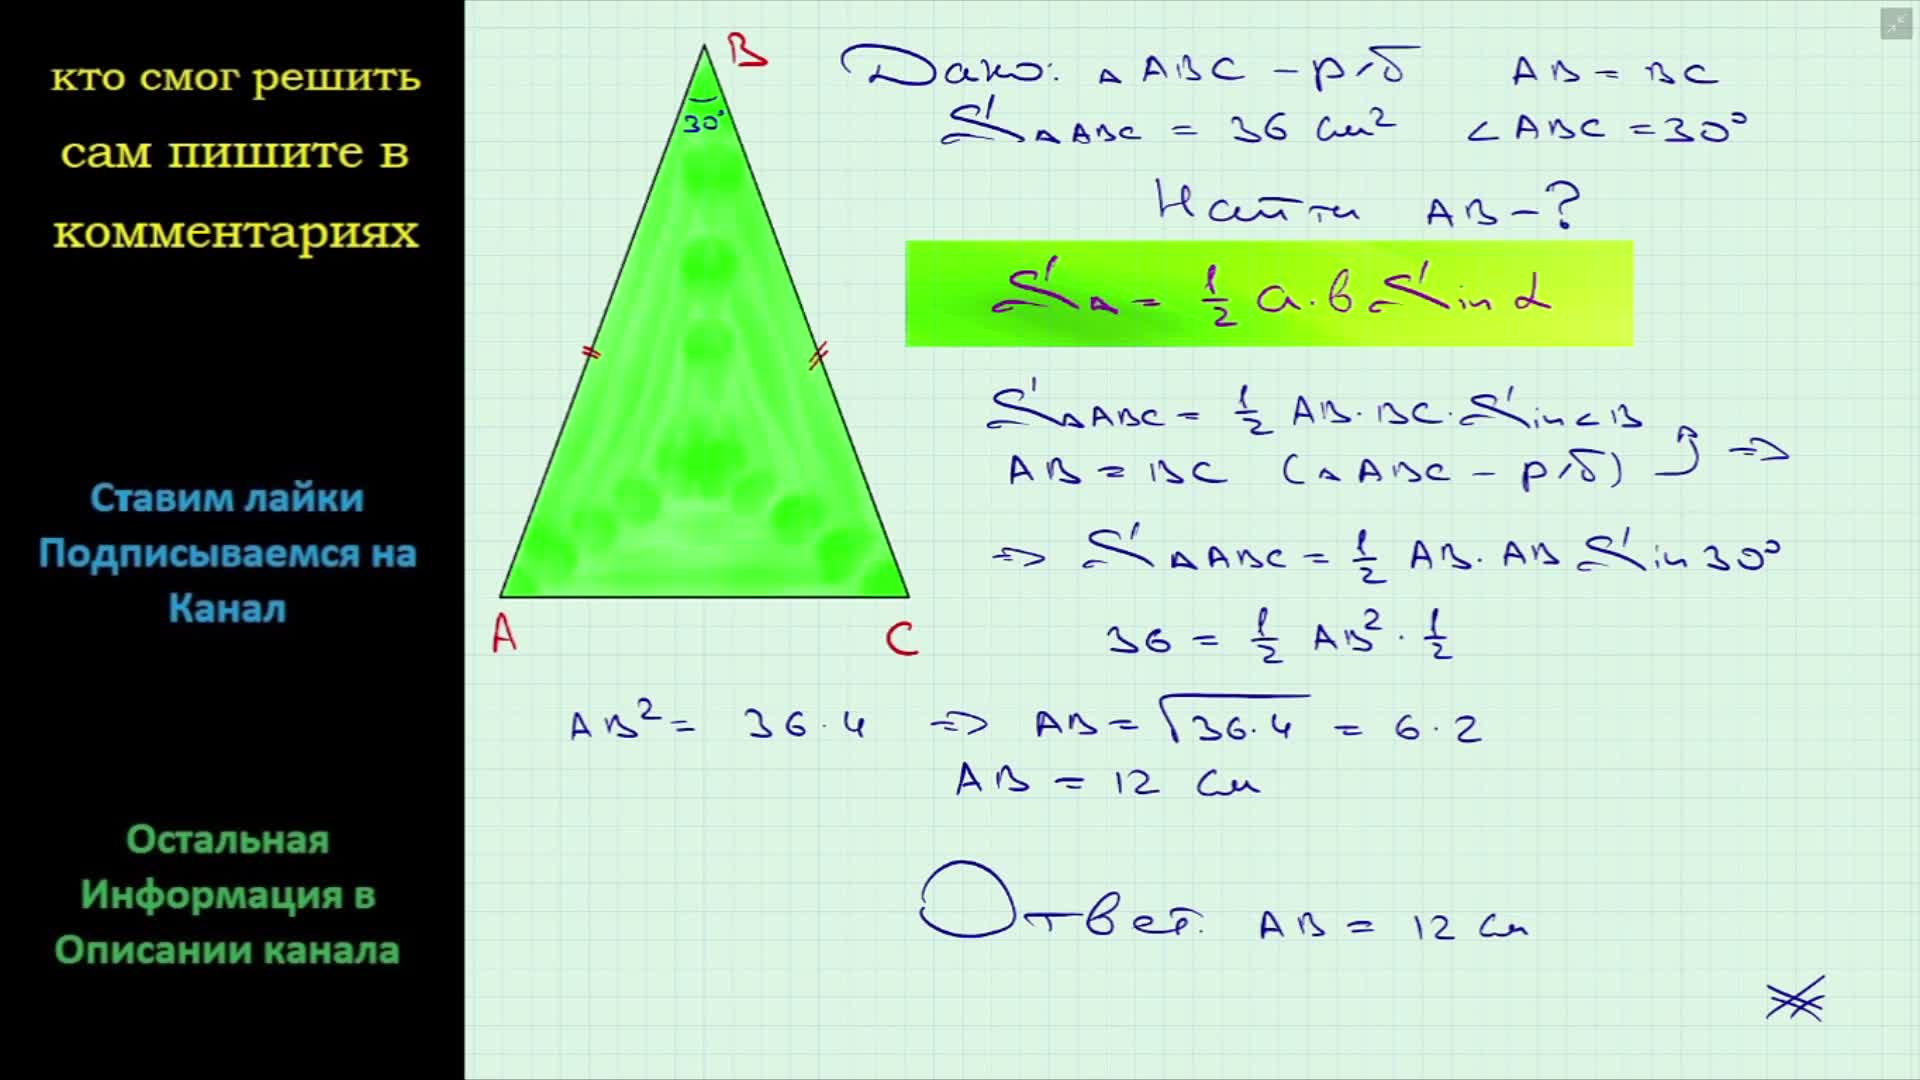 кто смог решить
сам пишите в
комментариях
Ставим лайки
Подписываемся на
Канал
Остальная
Информация в
Описании канала
B
30°
A
C
Дано: △ABC - р/б AB = BC
S△ABC = 36 см² ∠ABC = 30°
Найти AB - ?
S△ = 1/2 a · b Sin α
S△ABC = 1/2 AB · BC · Sin∠B
AB = BC (△ABC - р/б) } =>
=> S△ABC = 1/2 AB · AB Sin 30°
36 = 1/2 AB² · 1/2
AB² = 36 · 4 => AB = √36·4 = 6 · 2
AB = 12 см
Ответ: AB = 12 см